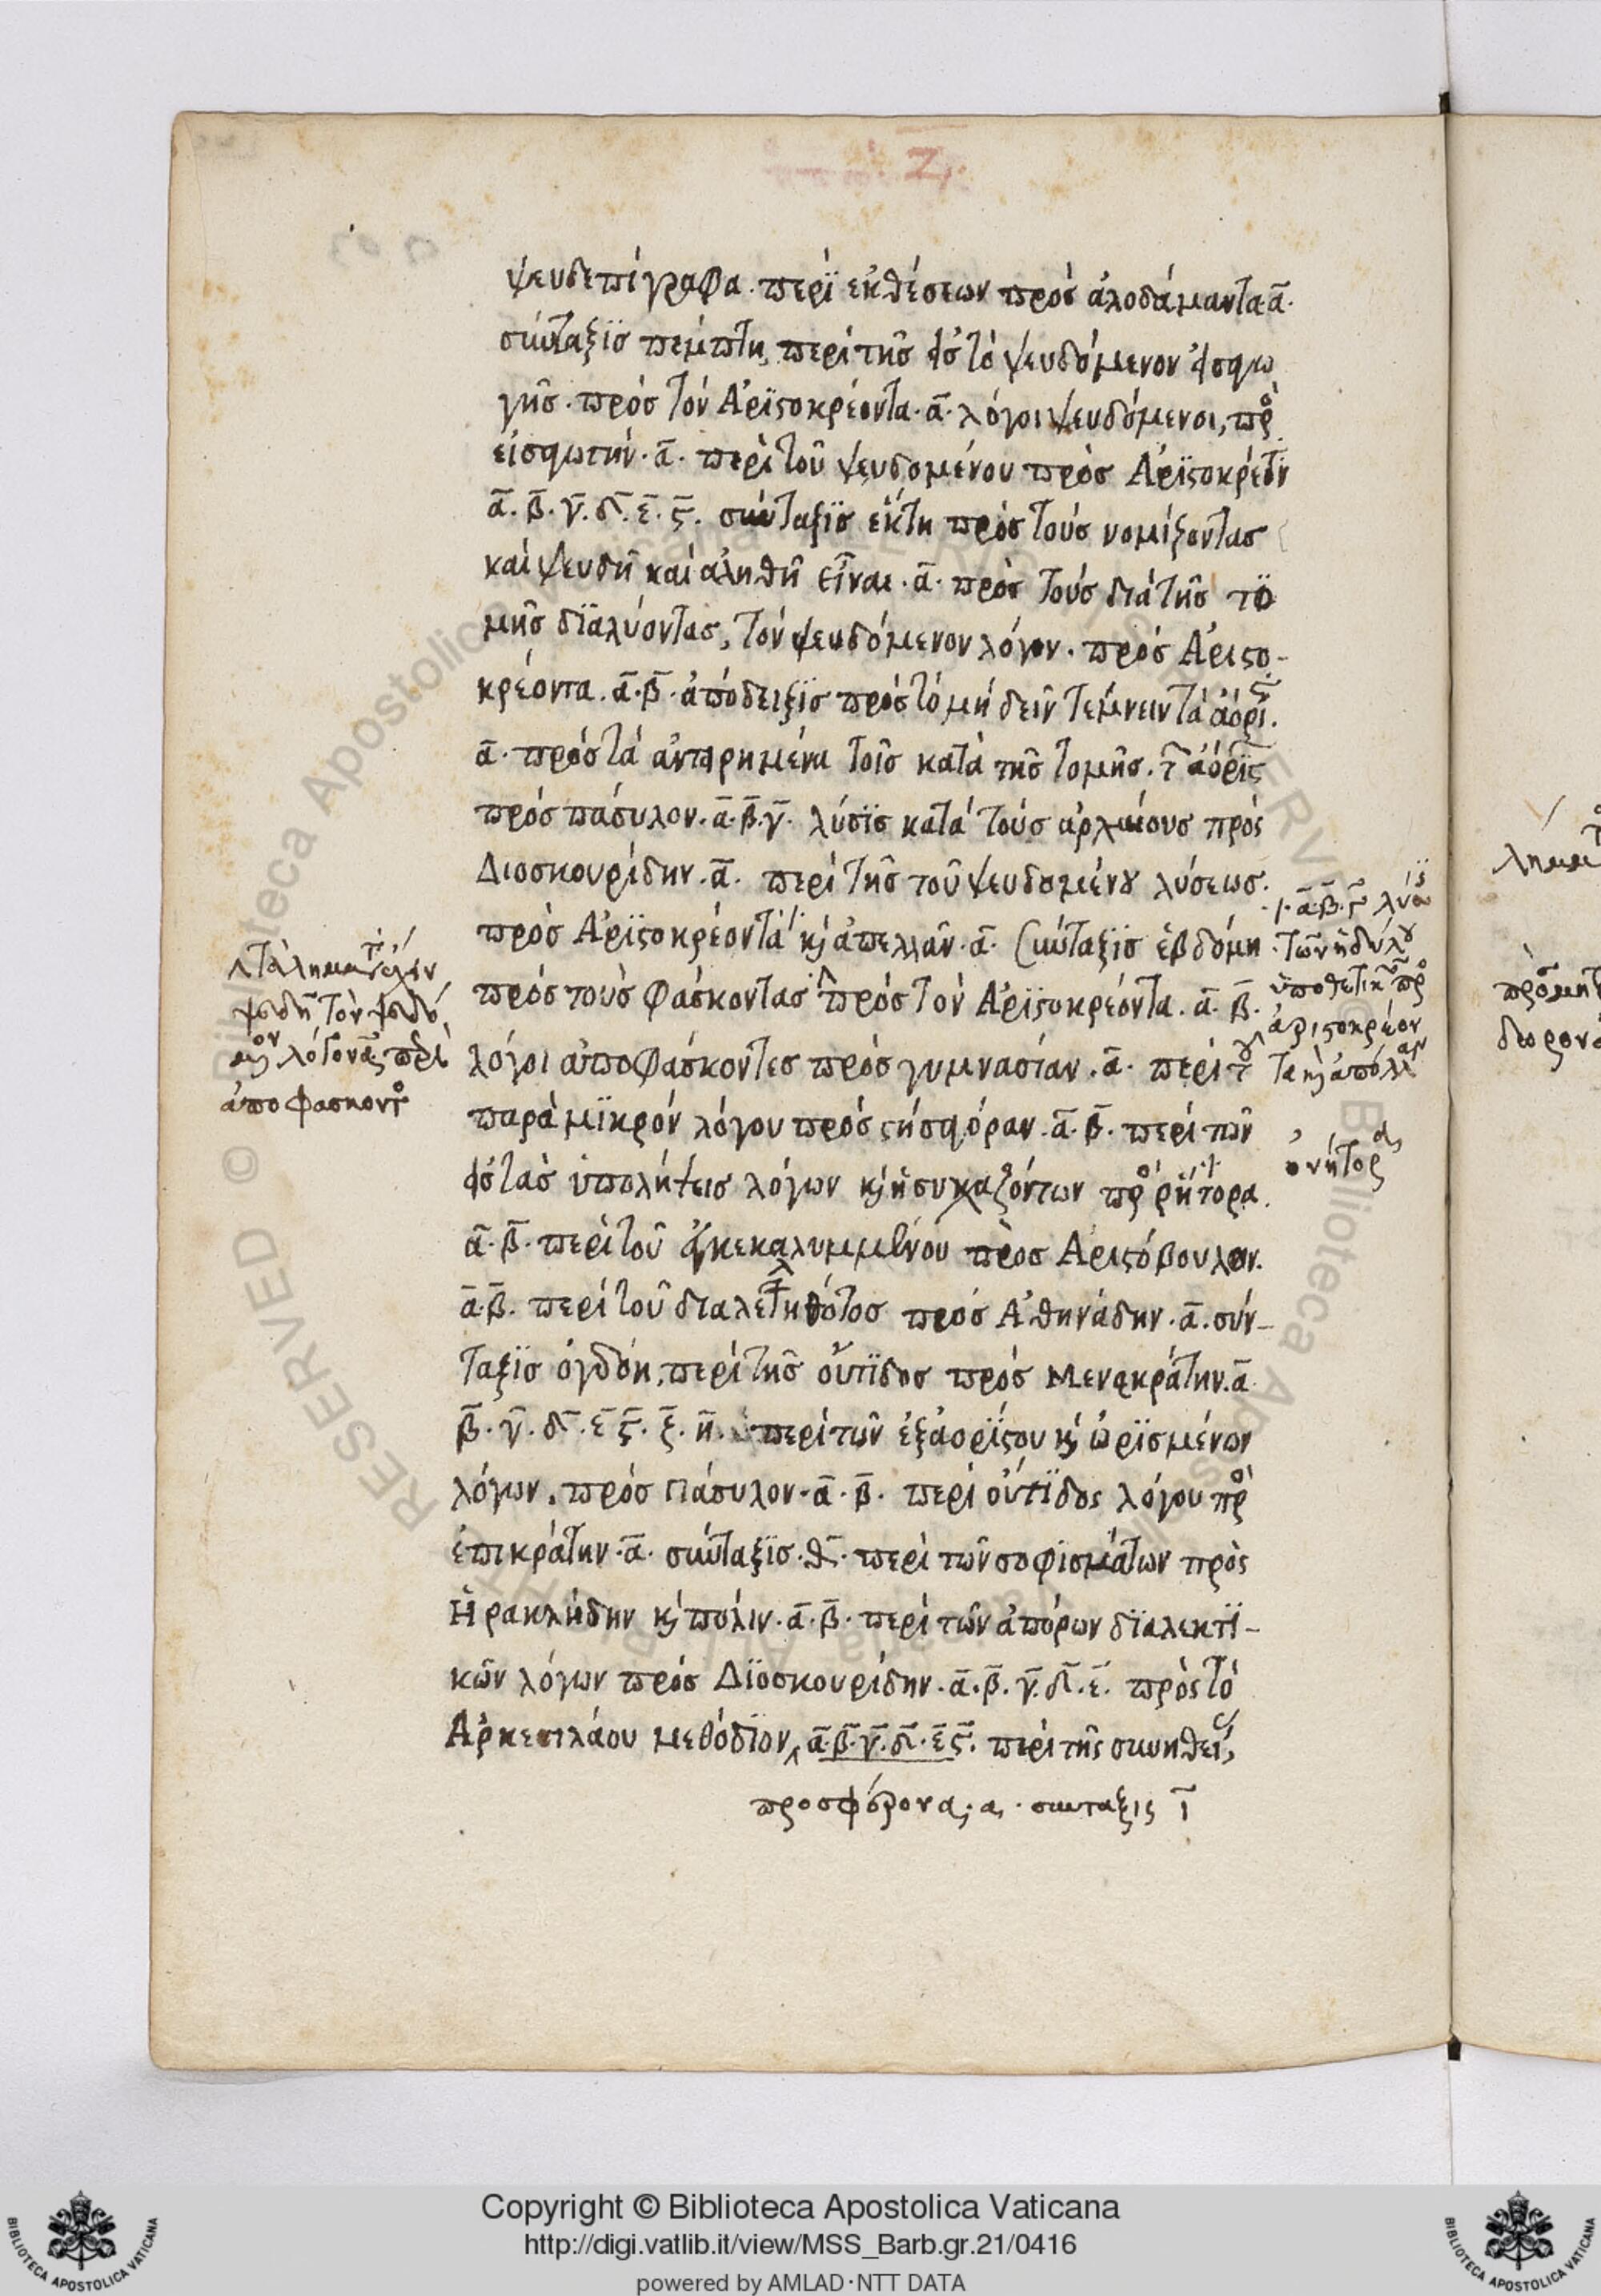 Ζ
ψευδεπίγραφα· περὶ ἐκθέσεων πρὸς ἀλοδάμαντα α̅·
σύνταξις πέμπτη, περὶ τῆς εἰς τὸ ψευδόμενον εἰσαγω
γῆς· πρὸς τὸν Ἀριστοκρέοντα· α̅· λόγοι ψευδόμενοι, πρ
εἰσαγωγήν· α̅· περὶ τοῦ ψευδομένου πρὸς Ἀριστοκρέον
α̅· β̅· γ̅· δ̅· ε̅· ς̅· σύνταξις ἕκτη πρὸς τοὺς νομίζοντας
καὶ ψευδῆ καὶ ἀληθῆ εἶναι· α̅· πρὸς τοὺς διὰ τῆς το
μῆς διαλύοντας, τὸν ψευδόμενον λόγον· πρὸς Ἀριστο-
κρέοντα· α̅· β̅· ἀπόδειξις πρὸς τὸ μὴ δεῖν τέμνειν τὰ ἀόρι
α̅· πρὸς τὰ ἀντιρημένα τοῖς κατὰ τῆς τομῆς· τ ἀόριστ
πρὸς πάσυλον· α̅· β̅· γ̅· λύσις κατὰ τοὺς ἀρχαίους πρὸς
Διοσκουρίδην· α̅· περὶ τῆς τοῦ ψευδομένου λύσεως·
πρὸς Ἀριστοκρέοντα κὶ ἀπελλᾶν· α̅· σύνταξις ἑβδόμη
πρὸς τοὺς φάσκοντας πρὸς τὸν Ἀριστοκρέοντα· α̅· β̅·
λόγοι ἀποφάσκοντες πρὸς γυμνασίαν· α̅· περὶ τ
παρὰ μικρὸν λόγου πρὸς στησαγόραν· α̅· β̅· περὶ τῶν
εἰς τὰς ὑπολήψεις λόγων κὶ ἡσυχαζόντων πρ ῥήτορα·
α̅· β̅· περὶ τοῦ ἐγκεκαλυμμένου πρὸς Ἀριστόβουλον·
α̅· β̅· περὶ τοῦ διαλεληθότος πρὸς Ἀθηνάδην· α̅· σύν-
ταξις ὀγδόη, περὶ τῆς οὔτιδος πρὸς Μενακράτην· α̅
β̅· γ̅· δ̅· ε̅ ς̅· ξ̅· η̅· περὶ τῶν ἐξ ἀορίστου κὶ ὡρισμένων
λόγων· πρὸς Πάσυλον· α̅· β̅· περὶ οὔτιδος λόγου πρ
ἐπικράτην· α̅· σύνταξις· θ̅· περὶ τῶν σοφισμάτων πρὸς
Ἡρακλήδην κὶ πόλιν· α̅· β̅· περὶ τῶν ἀπόρων διαλεκτι-
κῶν λόγων πρὸς Διοσκουρίδην· α̅· β̅· γ̅· δ̅· ε̅· πρὸς τὸ
Ἀρκεσιλάου μεθόδιον, α̅· β̅· γ̅· δ̅· ε̅ ς̅· περὶ τῆς συνηθεί,
προσφόρονα; α· σύνταξις ι̅
τὰ λήμματ
ψευδῆ τὸν ψευδό
λόγον α̅, περὶ
ἀποφάσκοντ
α̅· β̅· λύσ
τῶν ἡδύλου
ὑποθετικ πρ
ἀριστοκρέον
τα κὶ ἀπελλ
ὀνήτορ
RESERVED © Biblioteca Apostolica Vaticana
Copyright © Biblioteca Apostolica Vaticana
http://digi.vatlib.it/view/MSS_Barb.gr.21/0416
powered by AMLAD·NTT DATA
BIBLIOTECA APOSTOLICA VATICANA
BIBLIOTECA APOSTOLICA VATICANA